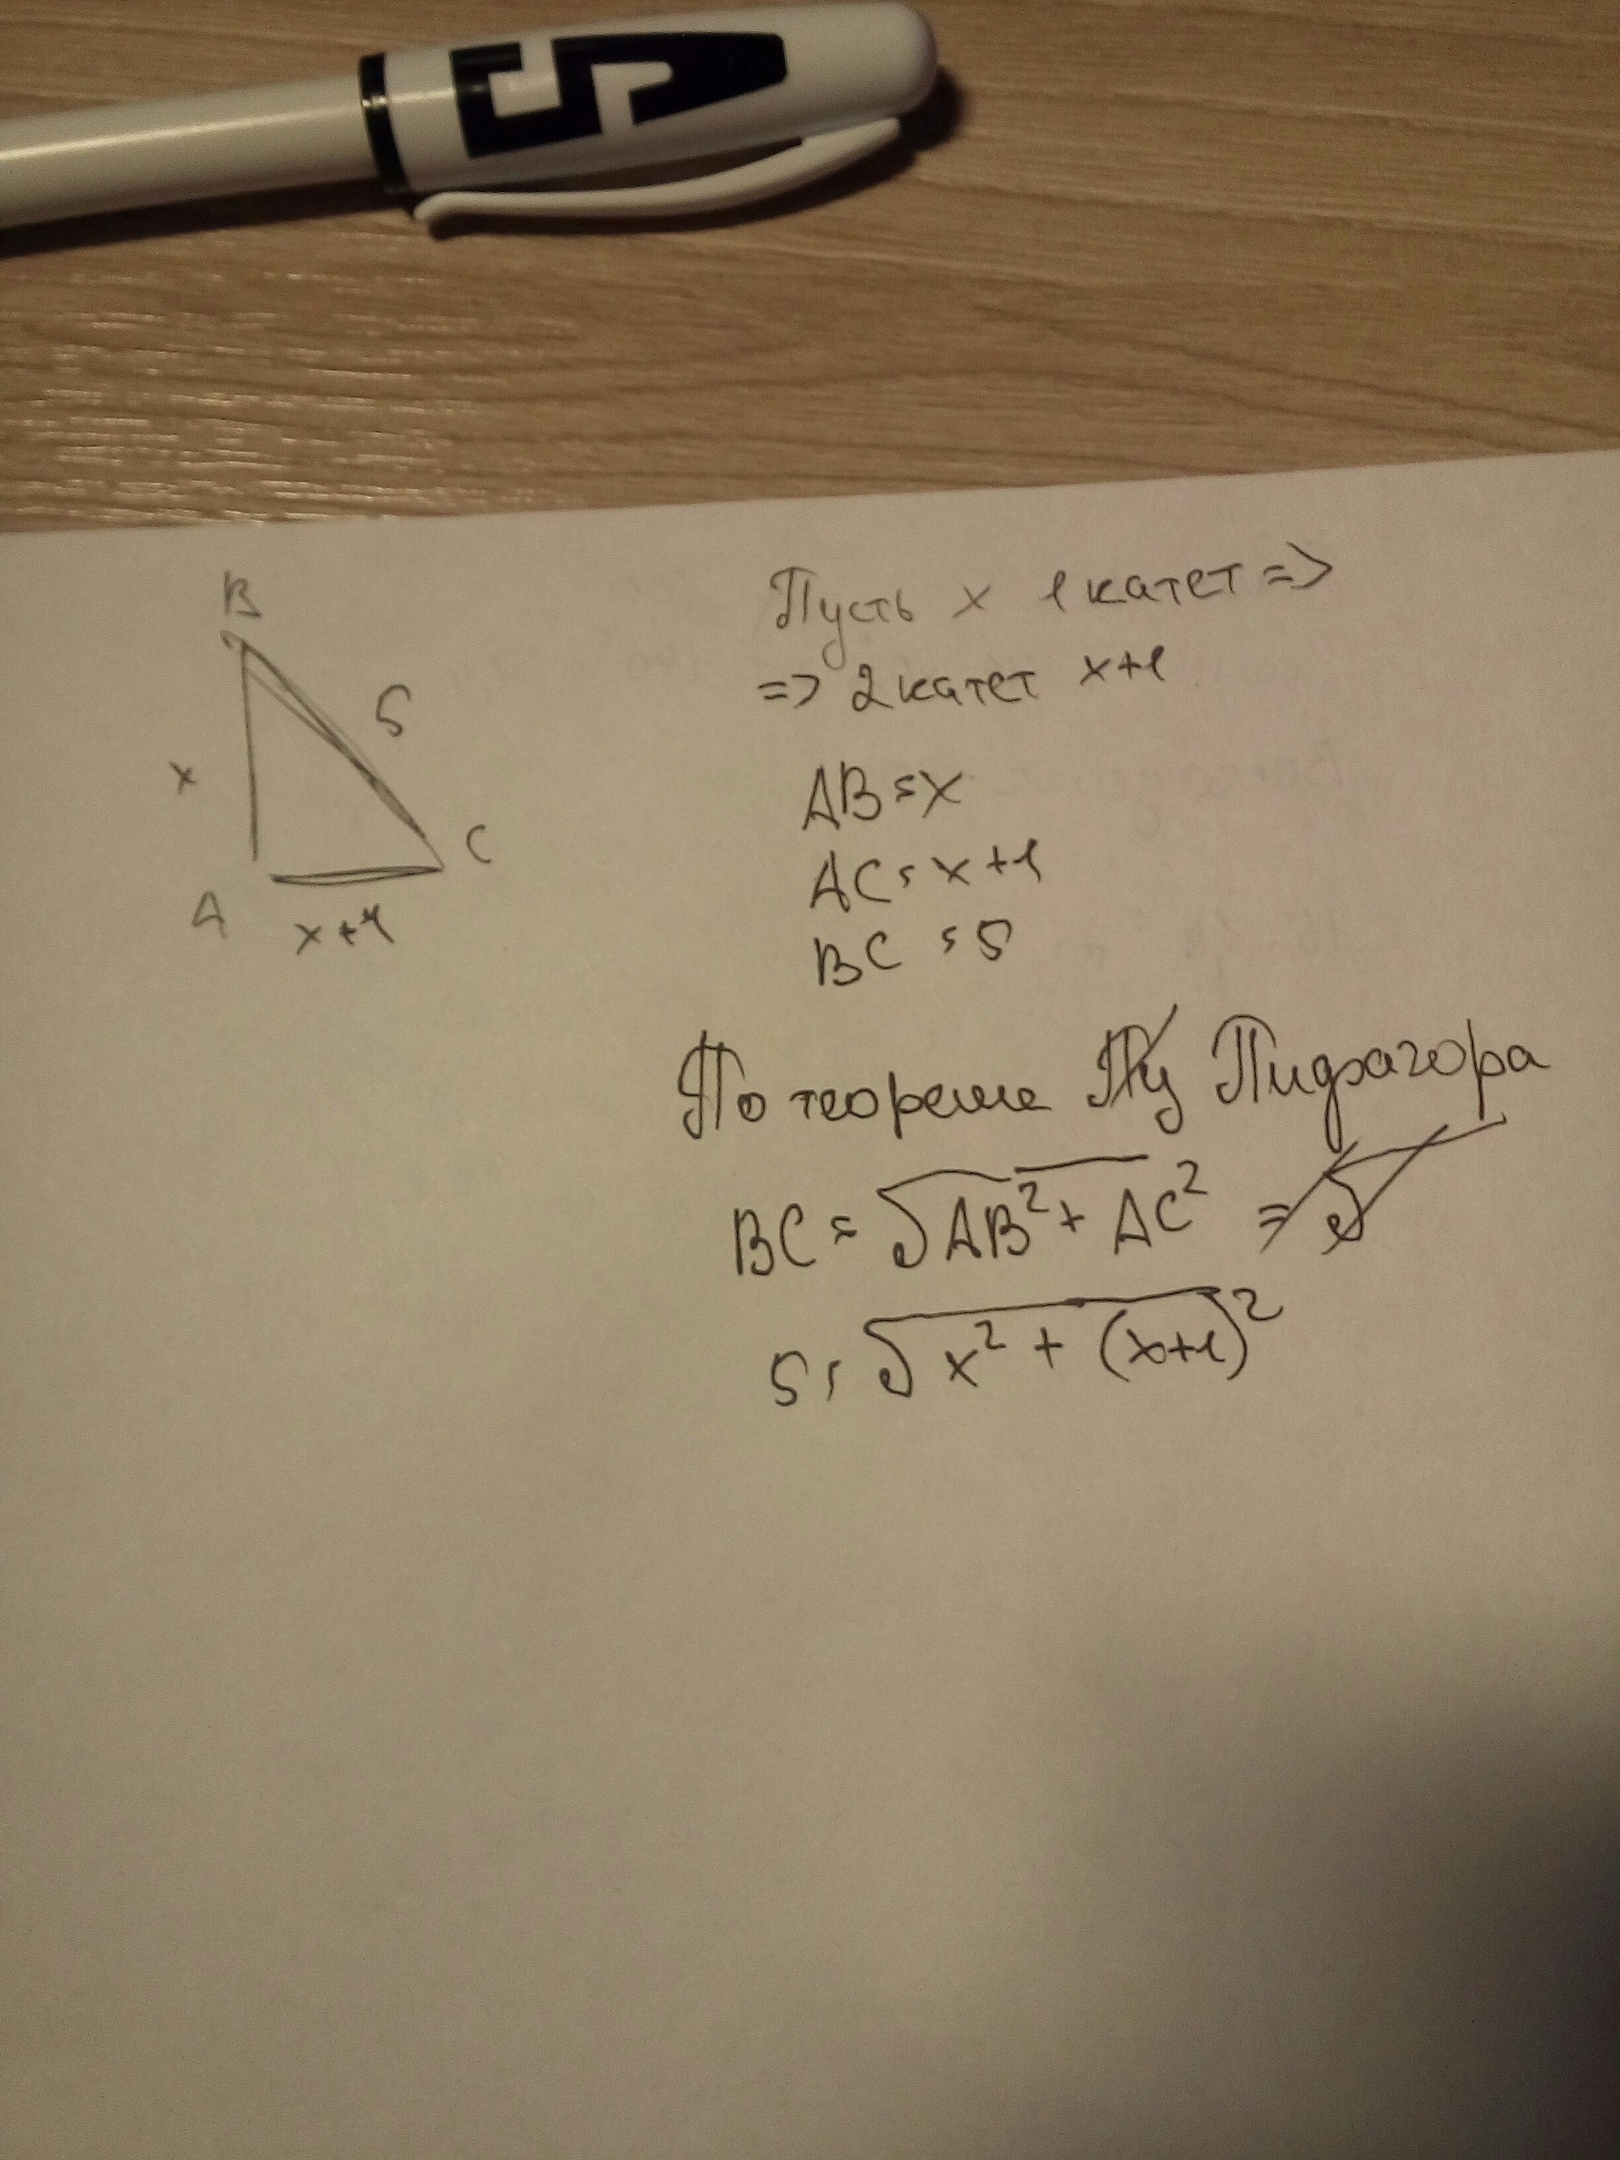 B
5
x
C
A
x+1
Пусть x 1 катет =>
=> 2 катет x+1
AB=x
AC=x+1
BC=5
По теореме Пифагора
BC=√AB²+AC²
5=√x²+(x+1)²